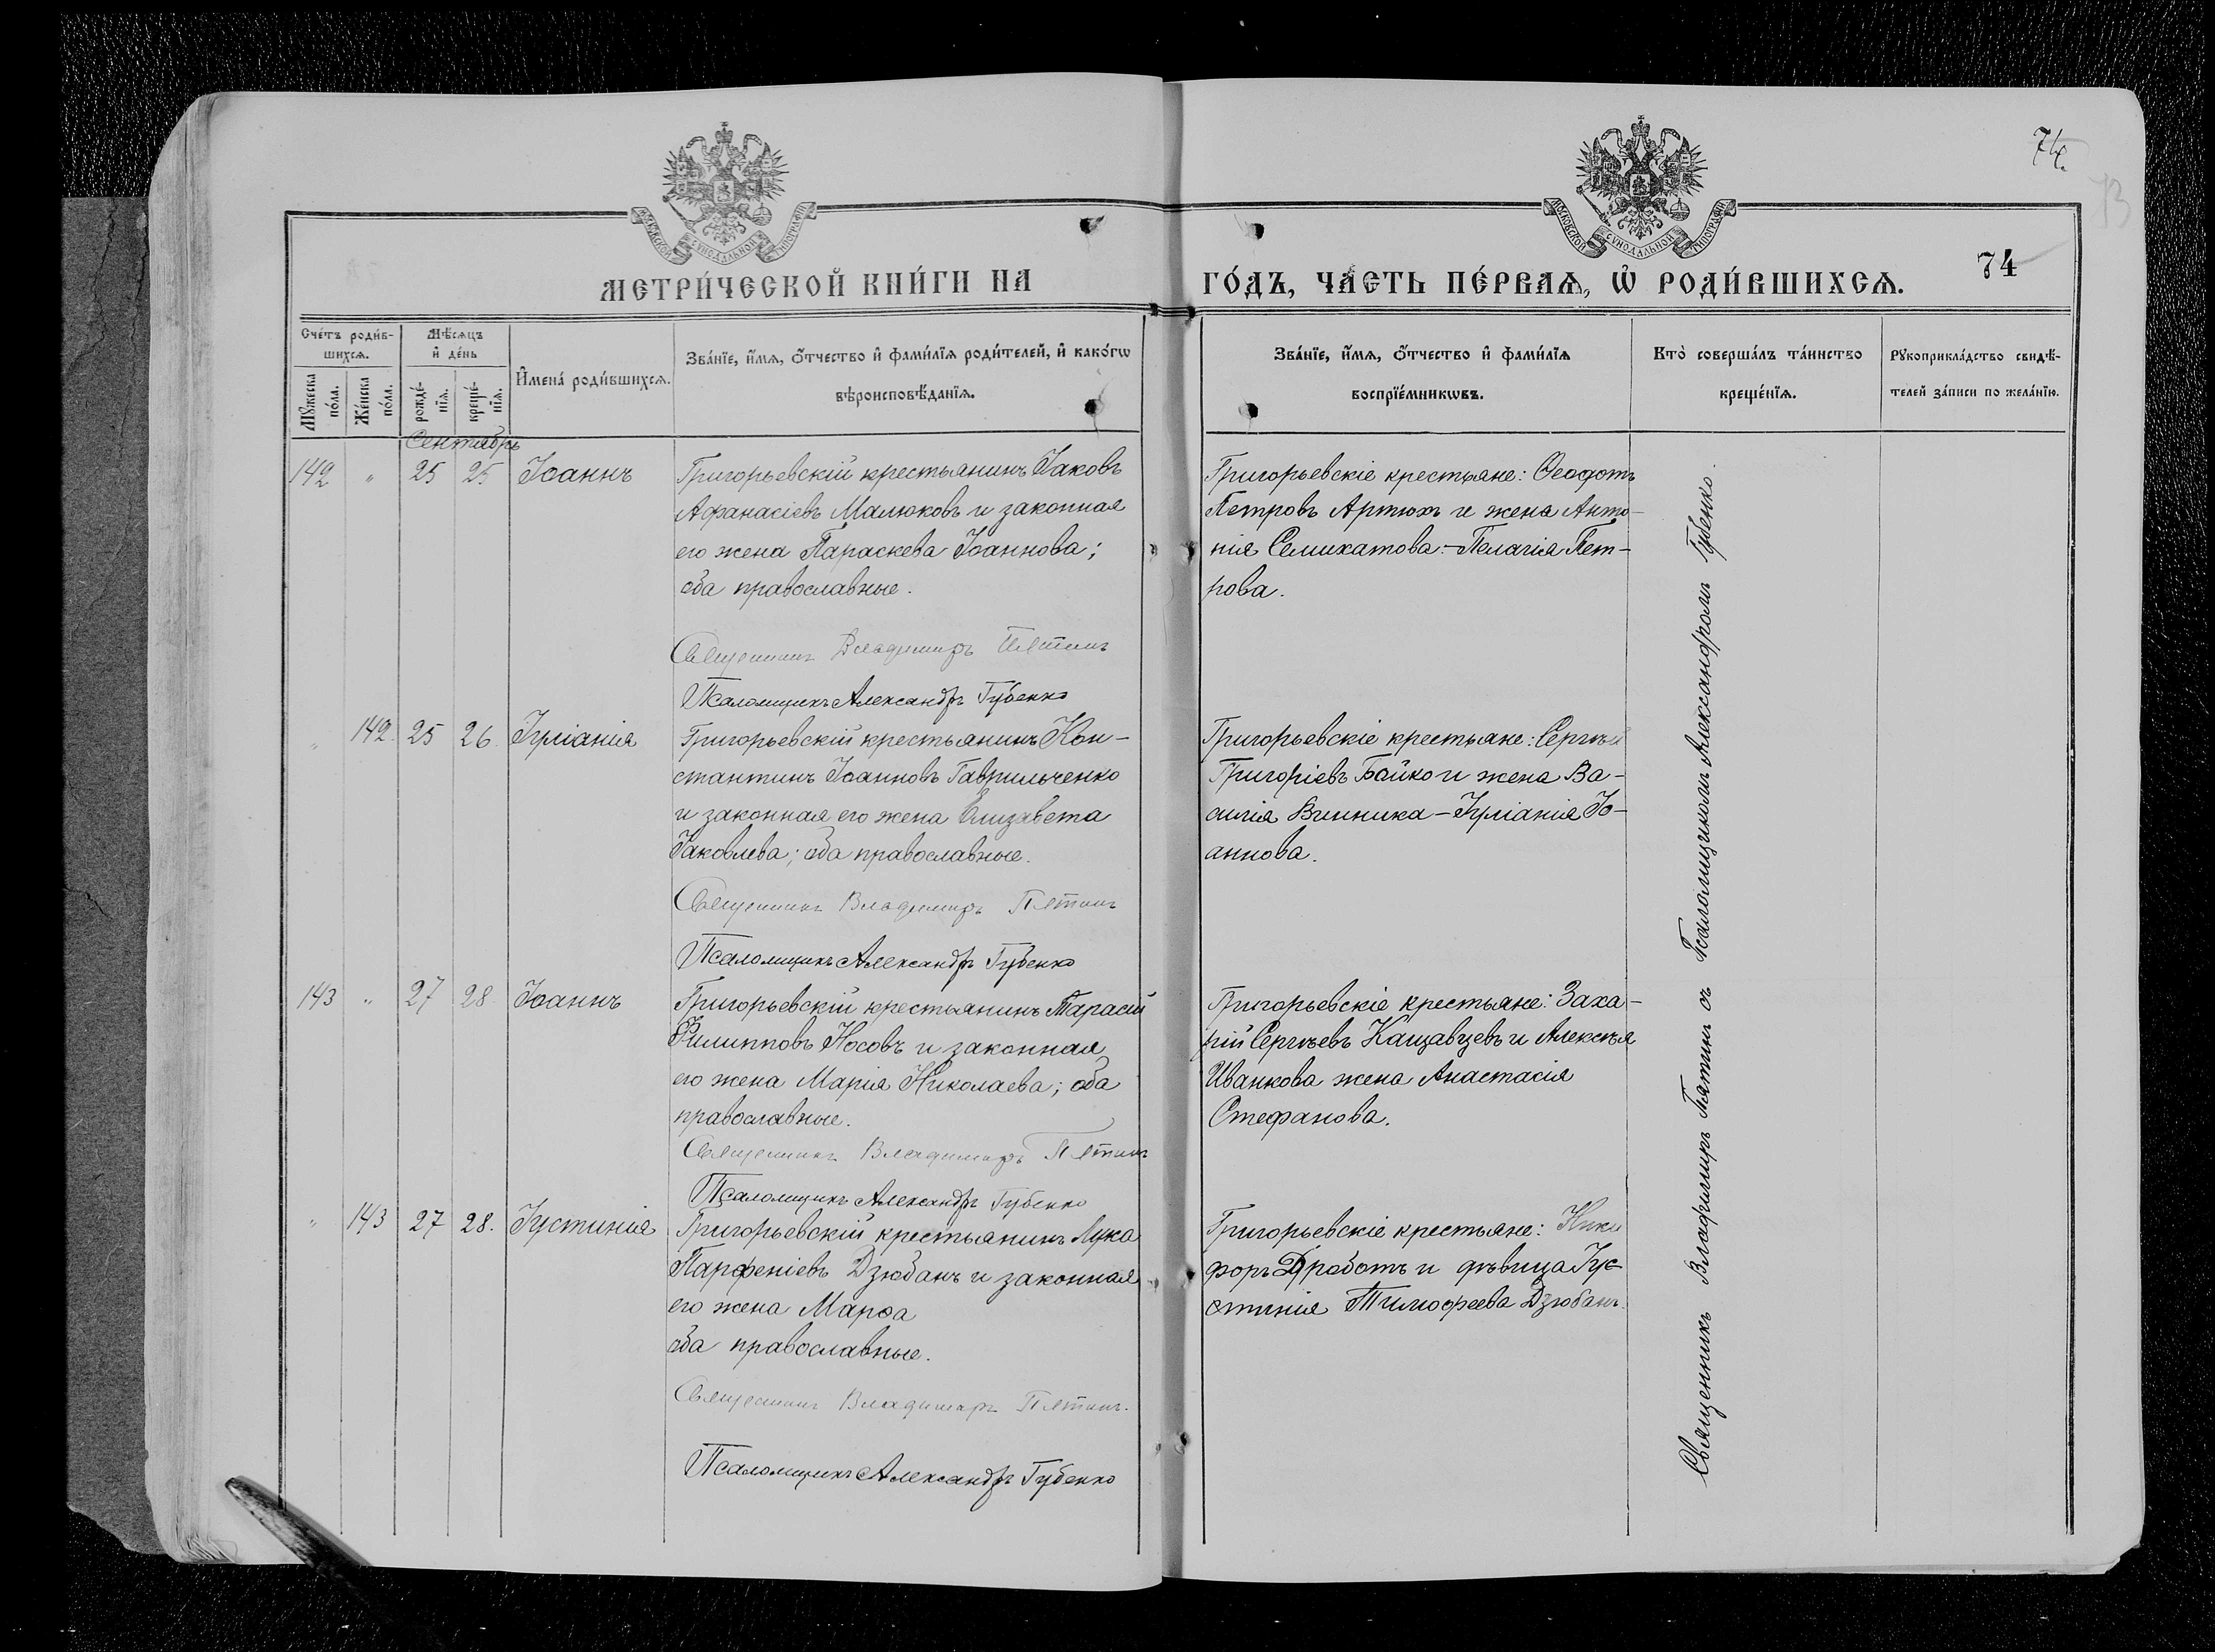 74.
73
МОСКОВСКОЙ СѴНОДАЛЬНОЙ ТИПОГРАФІИ
МОСКОВСКОЙ СѴНОДАЛЬНОЙ ТИПОГРАФІИ
МЕТРИ́ЧЕСКОЙ КНИ́ГИ НА
ГО́ДЪ, ЧА́СТЬ ПЕ́РВАѦ, Ѡ҆ РОДИ́ВШИХСѦ.
74
Сче́тъ роди́в-
шихсѧ.
Мꙋ́жеска по́ла.
Же́нска по́ла.
Мѣ́сѧцъ
и҆ де́нь
рожде́-
нїѧ.
креще́-
нїѧ.
И҆мена́ роди́вшихсѧ.
Зва́нїе, и҆́мѧ, ѻ҆́тчество и҆ фами́лїѧ роди́телей, и҆ како́гѡ
вѣроисповѣ́данїѧ.
Зва́нїе, и҆́мѧ, ѻ҆́тчество и҆ фами́лїѧ
воспрїе́мникѡвъ.
Кто̀ соверша́лъ та́инство
креще́нїѧ.
Рꙋкоприкла́дство свидѣ́-
телей за́писи по жела́нїю.
Сентябрь
142 " 25 25 Іоаннъ
Григорьевскій крестьянинъ Іаковъ
Аѳанасіевъ Малюковъ и законная
его жена Параскева Іоаннова;
оба православные.
Священникъ Владимиръ Пятинъ
Псаломщикъ Александръ Губенко
Григорьевскіе крестьяне: Ѳеодотъ
Петровъ Артюхъ и жена Анто-
нія Семикатова:-Пелагія Пет-
рова.
" 142. 25 26. Іуліанія
Григорьевскій крестьянинъ Кон-
стантинъ Іоанновъ Гаврильченко
и законная его жена Елизавета
Іаковлева; оба православные.
Священникъ Владимиръ Пятинъ
Псаломщикъ Александръ Губенко
Григорьевскіе крестьяне: Сергѣй
Григоріевъ Бойко и жена Ва-
силія Винника-Іуліанія Іо-
аннова.
143 " 27 28. Іоаннъ
Григорьевскій крестьянинъ Тарасій
Филипповъ Носовъ и законная
его жена Марія Николаева; оба
православные.
Священникъ Владимиръ Пятинъ
Псаломщикъ Александръ Губенко
Григорьевскіе крестьяне: Заха-
рій Сергѣевъ Кащавцевъ и Алексѣя
Иванкова жена Анастасія
Стефанова.
" 143 27 28. Іустинія
Григорьевскій крестьянинъ Лука
Парфеніевъ Дзюбанъ и законная
его жена Марѳа
оба православные.
Священникъ Владимиръ Пятинъ.
Псаломщикъ Александръ Губенко
Григорьевскіе крестьяне: Ники
форъ Дработъ и дѣвица Іус-
стинія Тимофеева Дзюбанъ.
Священникъ Владимиръ Пятин съ Псаломщикомъ Александромъ Губенко.